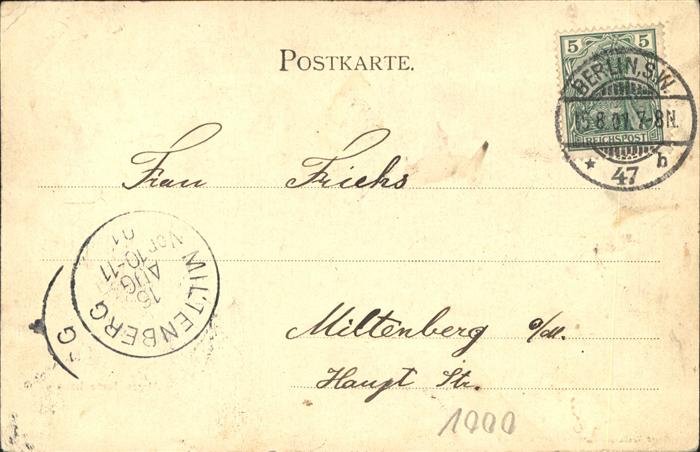 POSTKARTE.
5 5
REICHSPOST
BERLIN, S.W.
15.8.01.7-8N.
* 47 h
Frau Frichs
MILTENBERG
16
AUG
Vor 10-11
01
G
Miltenberg a/M.
Haupt Str.
1000